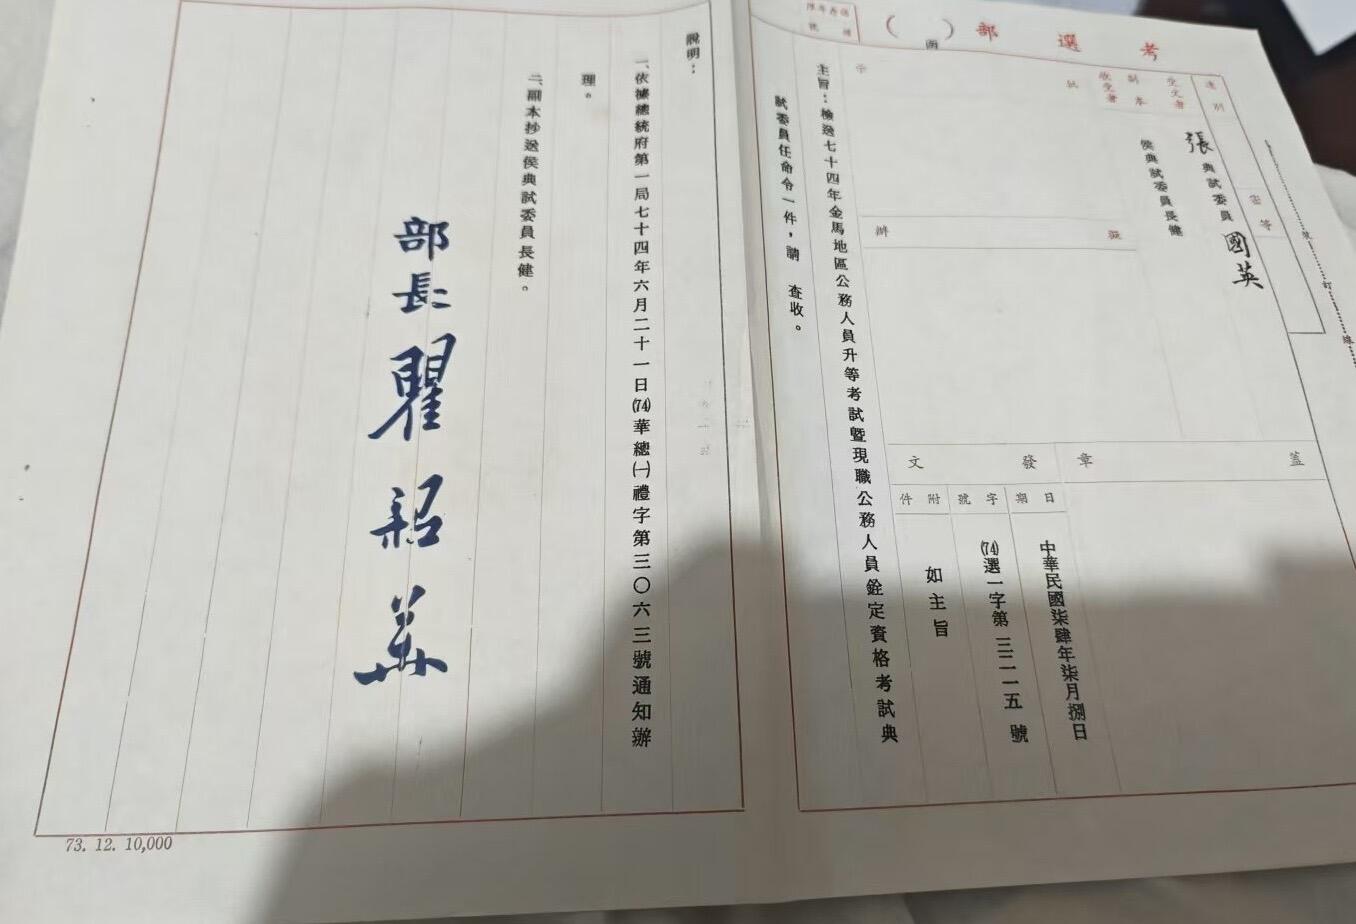 考選部(函)
速別
密等
受文者
張典試委員國英
副本
收受者
侯典試委員長健
批
示
擬
辦
蓋章
發文
日期
中華民國柒肆年柒月捌日
字號
(74)選一字第三二一五號
附件
如主旨
主旨：檢送七十四年金馬地區公務人員升等考試暨現職公務人員銓定資格考試典
試委員任命令一件，請 查收。
說明：
一、依據總統府第一局七十四年六月二十一日(74)華總(一)禮字第三〇六三號通知辦
理。
二、副本抄送侯典試委員長健。
部長 瞿紹華
73. 12. 10,000
裝
訂
線